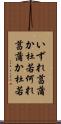 いずれ菖蒲
か杜若何れ
菖蒲か杜若